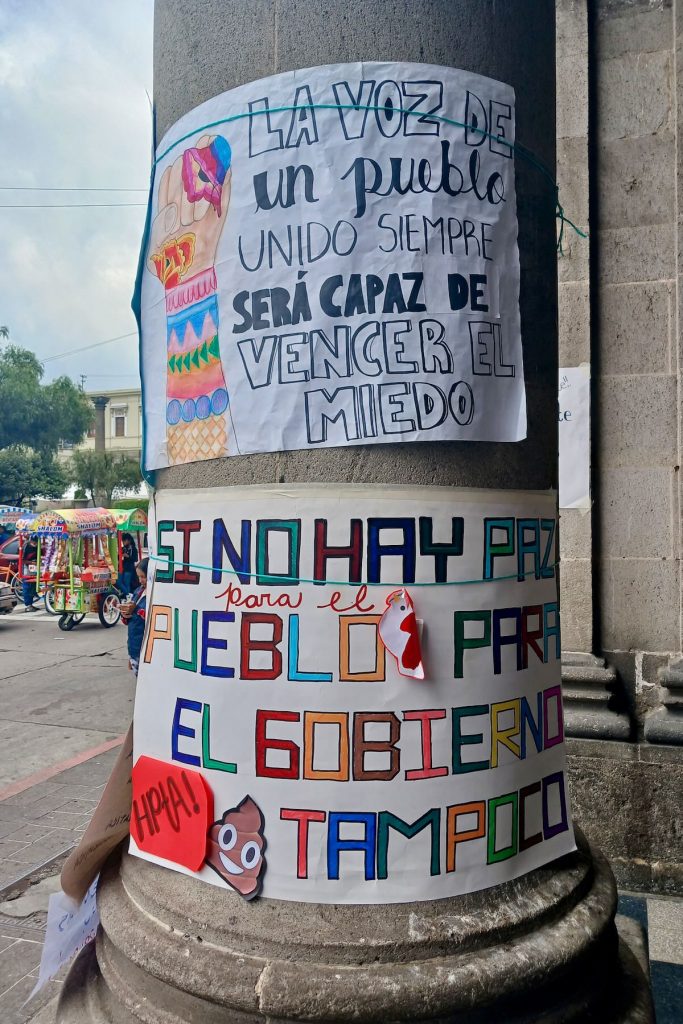 LA VOZ DE
un pueblo
UNIDO SIEMPRE
SERÁ CAPAZ DE
VENCER EL
MIEDO
SI NO HAY PAZ
para el
PUEBLO PARA
EL GOBIERNO
TAMPOCO
HPtA!
SHALOM